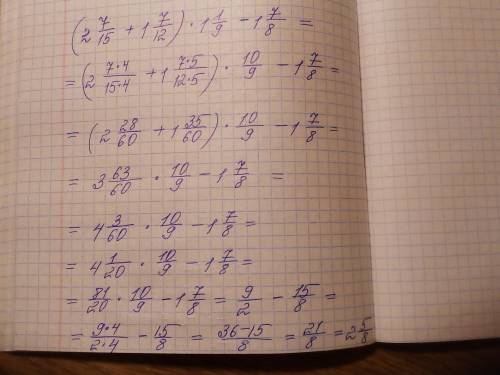 (2 7/15 + 1 7/12) · 1 1/9 − 1 7/8 =
= (2 7·4/15·4 + 1 7·5/12·5) · 10/9 − 1 7/8 =
= (2 28/60 + 1 35/60) · 10/9 − 1 7/8 =
= 3 63/60 · 10/9 − 1 7/8 =
= 4 3/60 · 10/9 − 1 7/8 =
= 4 1/20 · 10/9 − 1 7/8 =
= 81/20 · 10/9 − 1 7/8 = 9/2 − 15/8 =
= 9·4/2·4 − 15/8 = 36−15/8 = 21/8 = 2 5/8